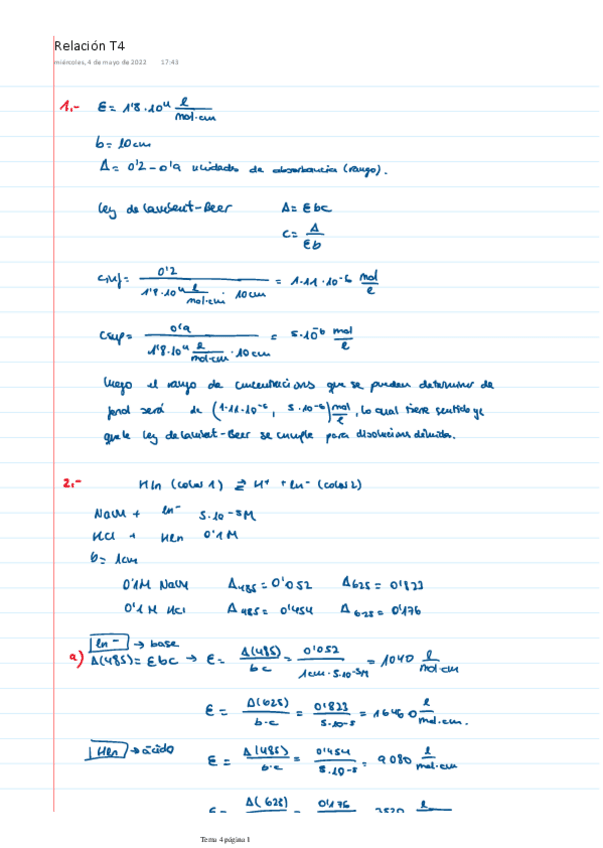 Relación T4
miércoles, 4 de mayo de 2022 17:43
1.- ε = 1'8·10⁴ l/mol·cm
b = 10cm
A = 0'2 - 0'9 unidades de absorbancia (rango).
Ley de Lambert-Beer A = εbc
c = A/εb
cinf = 0'2 / (1'8·10⁴ l/mol·cm · 10cm) = 1.11·10⁻⁶ mol/l
csup = 0'9 / (1'8·10⁴ l/mol·cm · 10cm) = 5·10⁻⁶ mol/l
luego el rango de concentracions que se pueden determinar de
fenol será de (1.11·10⁻⁶, 5·10⁻⁶) mol/l, lo cual tiene sentido ya
que la ley de Lambert-Beer se cumple para disolucions diluidas.
2.- HIn (color 1) ⇌ H⁺ + In⁻ (color 2)
NaOH + In⁻ 5·10⁻⁵M
HCl + HIn 0'1M
b = 1cm
0'1M NaOH A₄₈₅ = 0'052 A₆₂₅ = 0'823
0'1M HCl A₄₈₅ = 0'454 A₆₂₅ = 0'176
In⁻ → base
a) A(485) = εbc → ε = A(485)/bc = 0'052/(1cm·5·10⁻⁵M) = 1040 l/mol·cm
ε = A(625)/b·c = 0'823/5·10⁻⁵ = 16460 l/mol·cm.
HIn → ácido ε = A(485)/b·c = 0'454/5·10⁻⁵ = 9080 l/mol·cm
ε = A(625) 0'176 3520 l
Tema 4 página 1